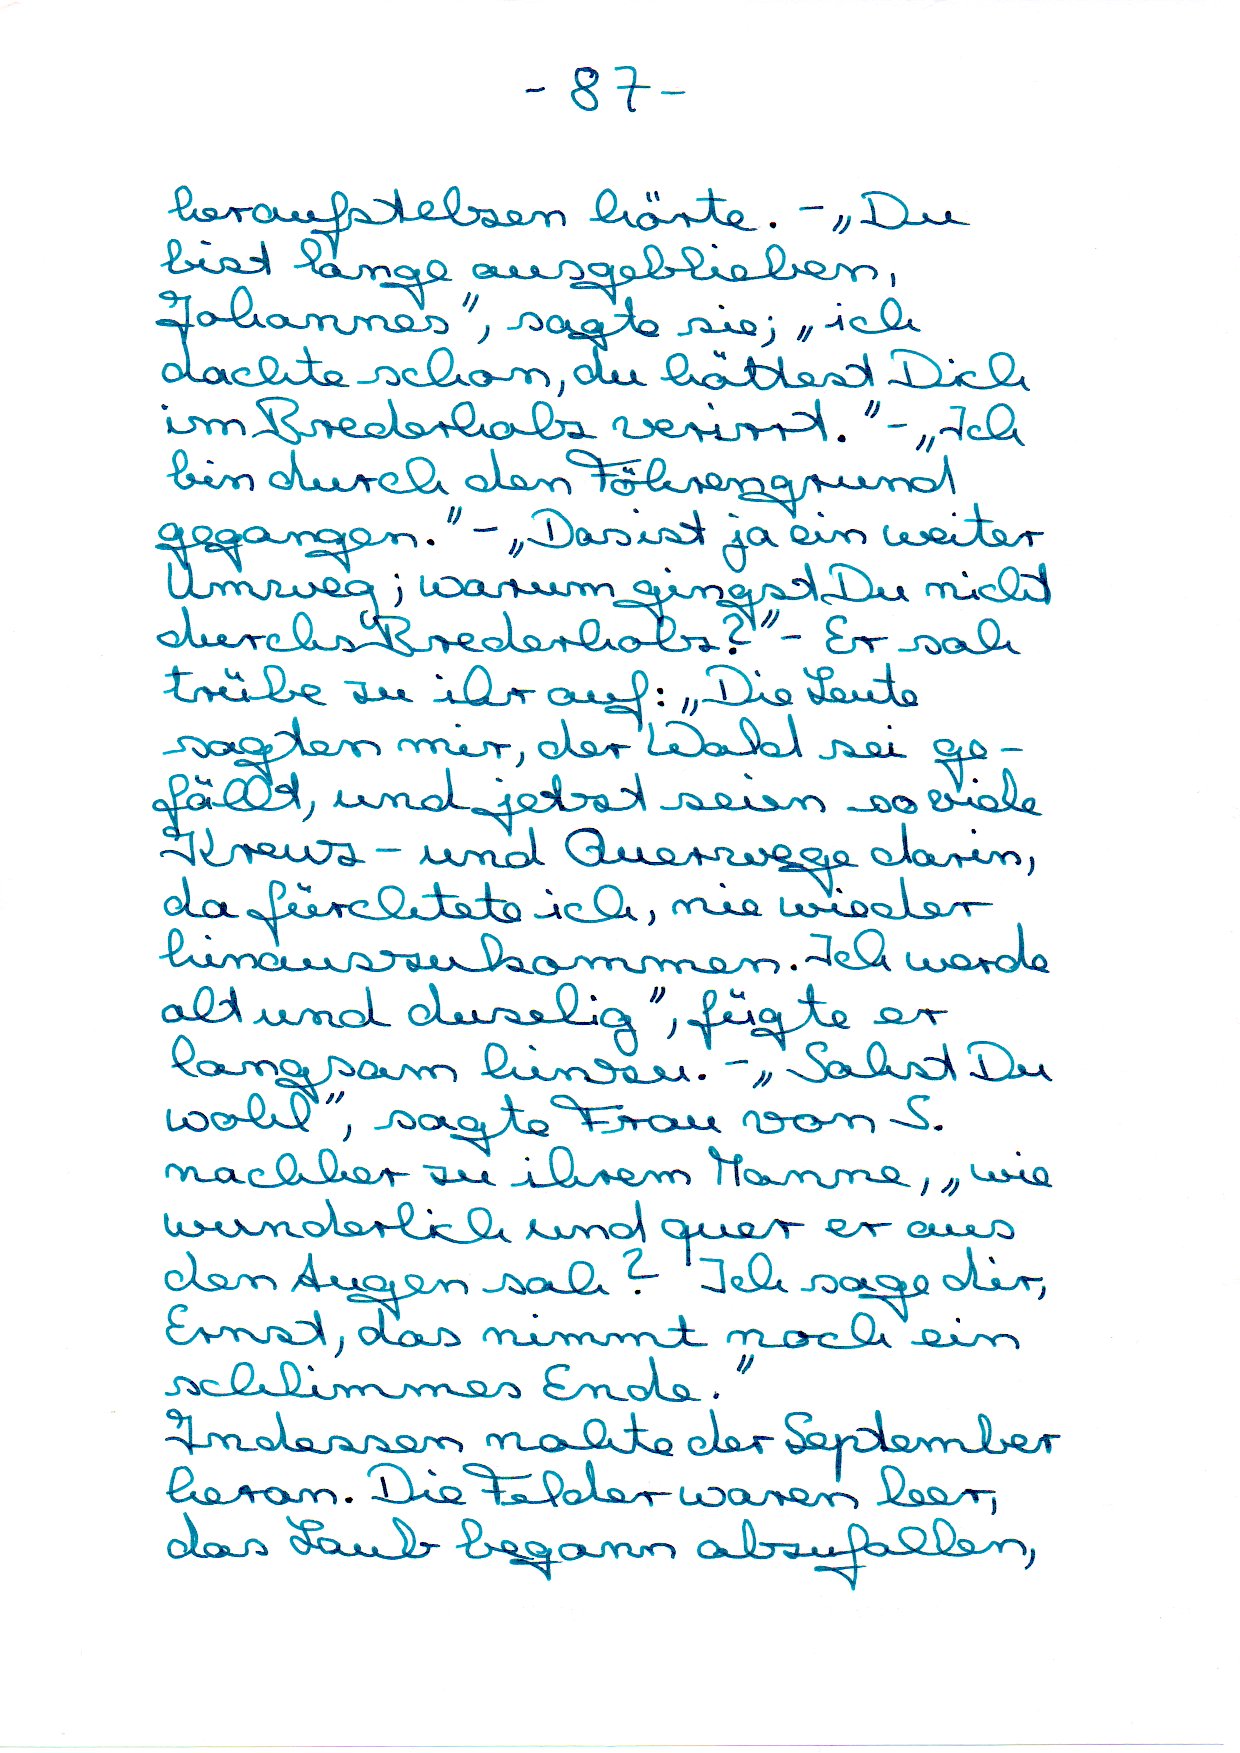 - 87 -
heraufstelzen hörte. - „Du
bist lange ausgeblieben,
Johannes”, sagte sie; „ich
dachte schon, du hättest Dich
im Brederholz verirrt.” - „Ich
bin durch den Föhrengrund
gegangen.” - „Das ist ja ein weiter
Umweg; warum gingst Du nicht
durchs Brederholz?” - Er sah
trübe zu ihr auf: „Die Leute
sagten mir, der Wald sei ge-
fällt, und jetzt seien so viele
Kreuz- und Querwege darin,
da fürchtete ich, nie wieder
hinauszukommen. Ich werde
alt und duselig”, fügte er
langsam hinzu. - „Sahst Du
wohl”, sagte Frau von S.
nachher zu ihrem Manne, „wie
wunderlich und quer er aus
den Augen sah? Ich sage dir,
Ernst, das nimmt noch ein
schlimmes Ende.”
Indessen nahte der September
heran. Die Felder waren leer,
das Laub begann abzufallen,